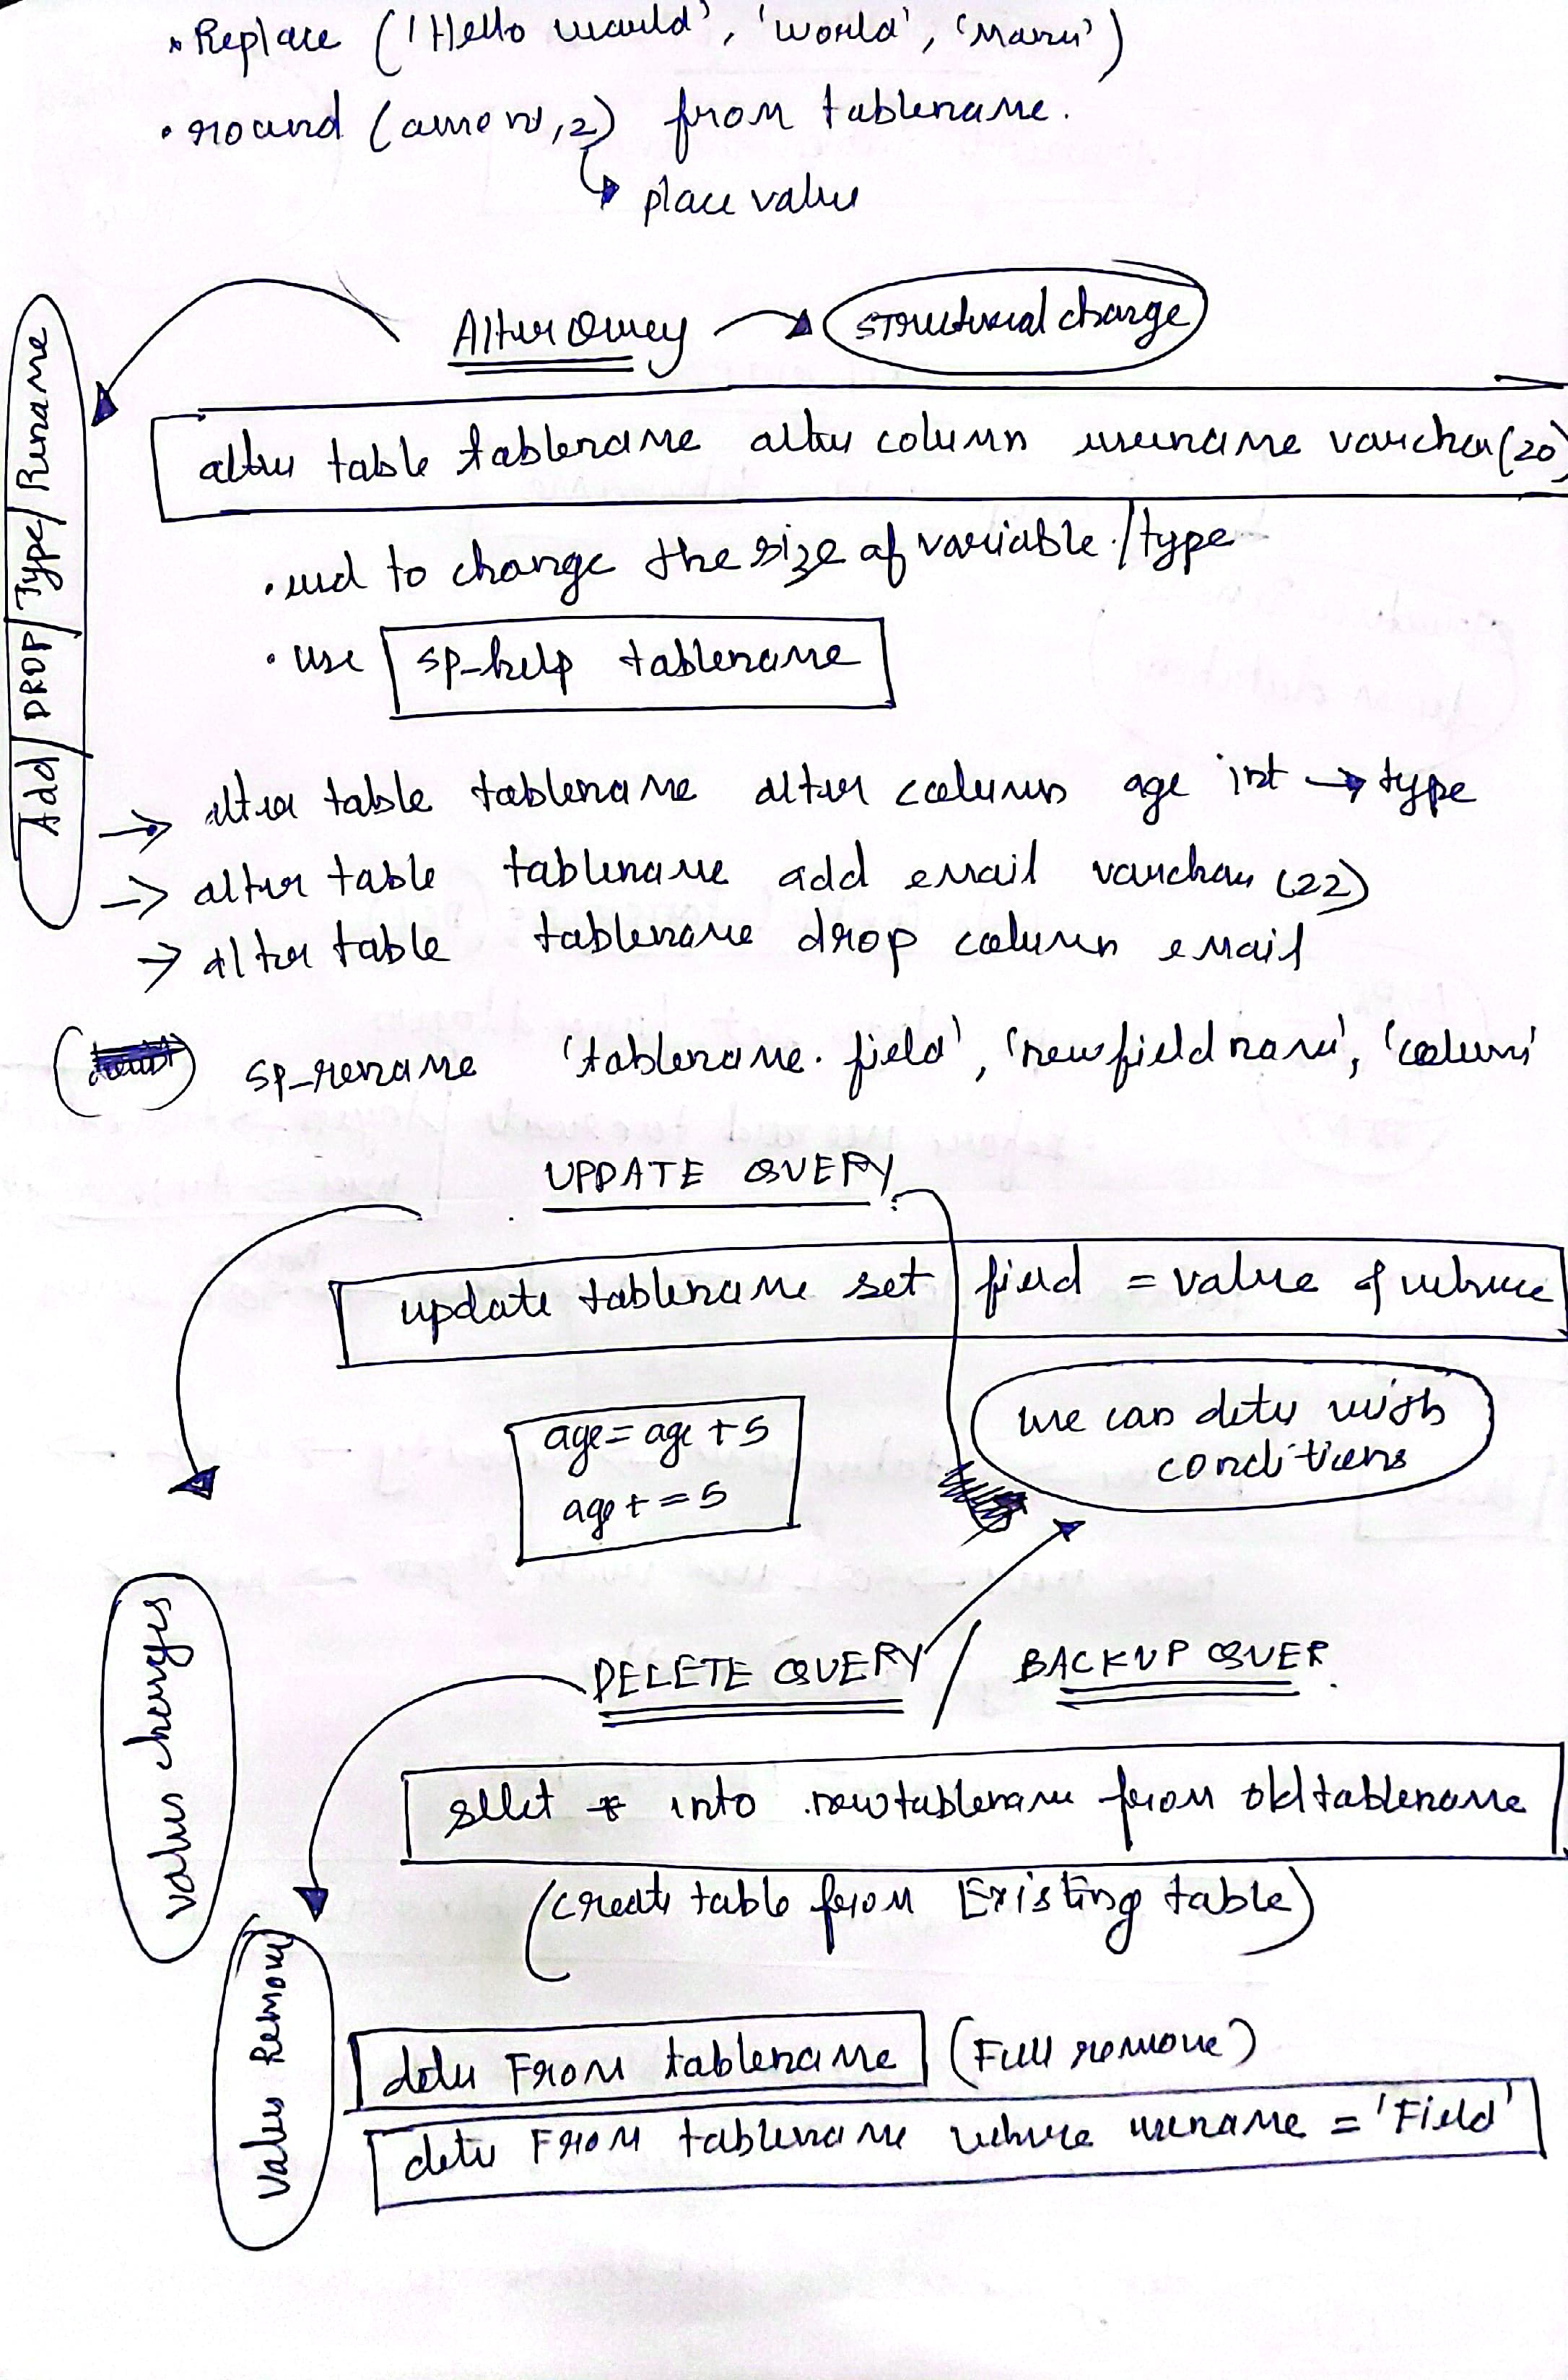 • Replace ('Hello world', 'world', 'Manu')
• round (amont,2) from tablename.
place value
Alter Query → structural change
Add / DROP / Type / Rename
alter table tablename alter column username varchar(20)
• used to change the size of variable / type
• use sp_help tablename
→ alter table tablename alter column age int → type
→ alter table tablename add email varchar (22)
→ alter table tablename drop column email
sp_rename 'tablename. field', 'newfieldname', 'column'
UPDATE QUERY
update tablename set field = value of where
age = age + 5
age + = 5
we can delete with
conditions
values changes
DELETE QUERY / BACKUP QUER.
select * into newtablename from oldtablename
(create table from Existing table)
Values Remove
delete From tablename (Full remove)
delete From tablename where username = 'Field'